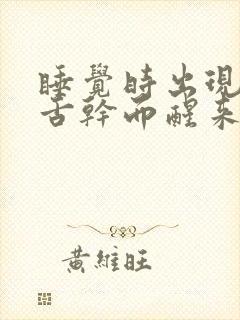 睡覺時出現
舌幹而醒來
黃維旺